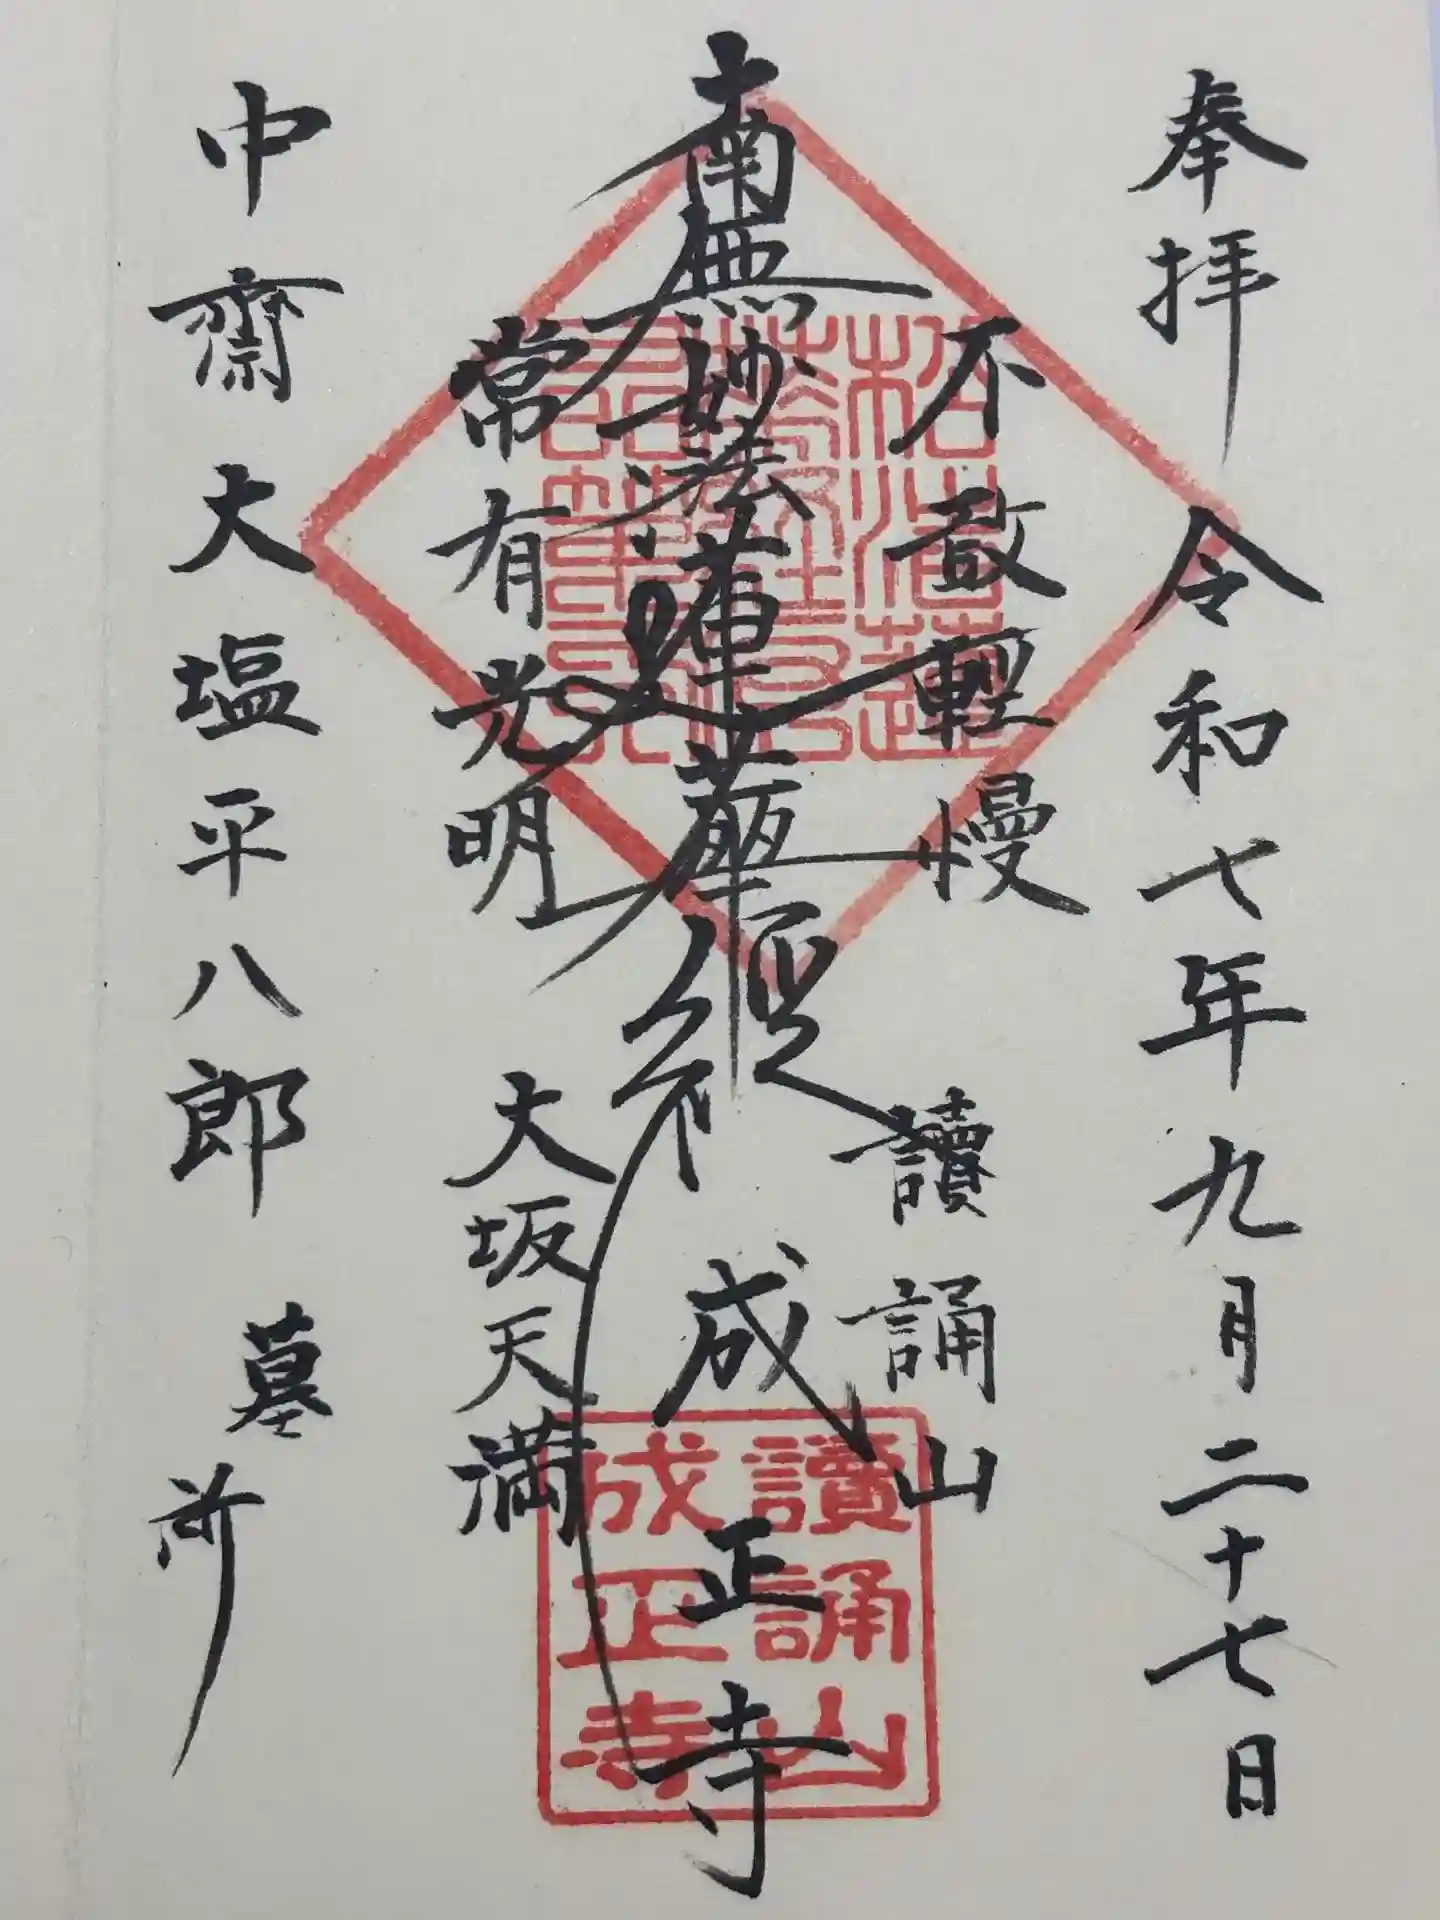 奉拝　令和七年九月二十七日
不敢軽慢
讀誦山
南無妙法蓮華経
成正寺
常有光明
大坂天満
中齋大塩平八郎　墓所
讀誦山
成正寺